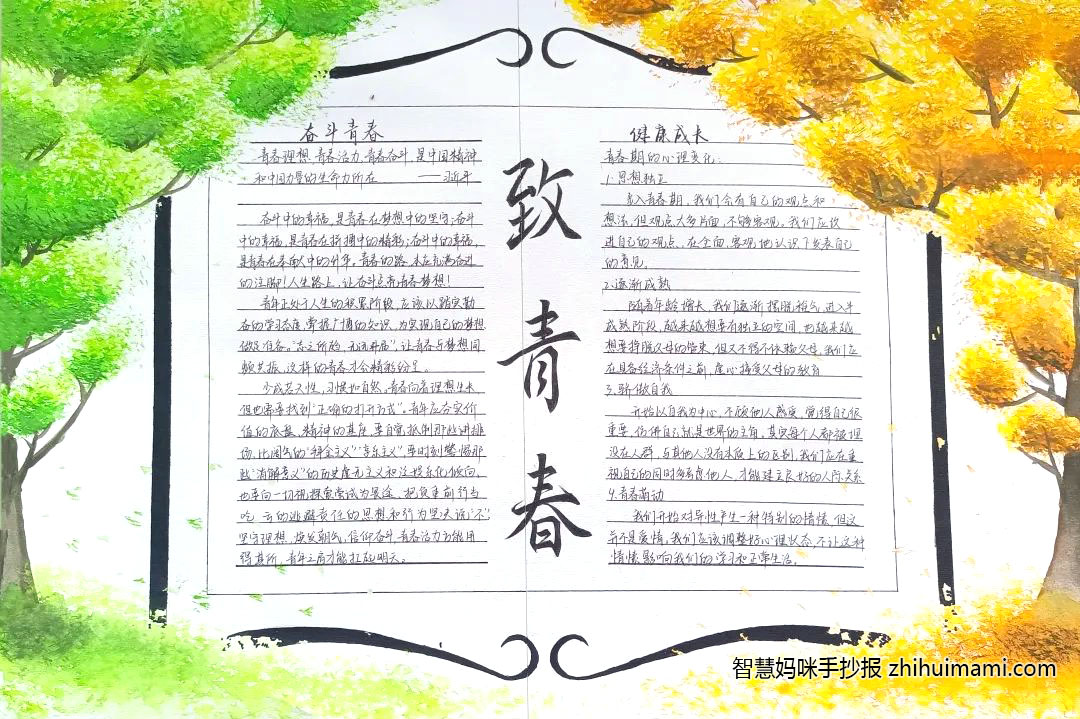 奋斗青春
青春理想,青春活力,青春奋斗,是中国精神
和中国力量的生命力所在 ——习近平
奋斗中的幸福,是青春在梦想中的坚守;奋斗
中的幸福,是青春在拼搏中的精彩;奋斗中的幸福,
是青春在奉献中的升华。青春的路,永在充满奋进
的注脚!人生路上,让奋斗点亮青春梦想!
青年正处于人生的积累阶段,应该以踏实勤
奋的学习态度,掌握广博的知识,为实现自己的梦想
做足准备。"志之所趋,无远弗届",让青春与梦想同
频共振,这样的青春才会精彩纷呈。
少成若天性,习惯如自然。青春向着理想生长
但也需要找到"正确的打开方式"。青年应夯实价
值的底盘、精神的基座,要自觉抵制那些讲排
场、比阔气的"拜金主义""享乐主义",要时刻警惕那
些"消解意义"的历史虚无主义和泛娱乐化倾向,
也要向一切视探索尝试为畏途、把负重前行当
吃亏的逃避责任的思想和行为坚决说"不"
坚守理想,焕发朝气,信仰奋斗,青春活力方能用
得其所,青年之肩才能扛起明天。
致
青
春
健康成长
青春期的心理变化:
1.思想独立
步入青春期,我们会有自己的观点和
想法,但观点大多片面,不够客观。我们应改
进自己的观点,在全面、客观地认识下发表自己
的意见。
2.逐渐成熟
随着年龄增长,我们逐渐摆脱稚气,进入半
成熟阶段,越来越想要有独立的空间,也越来越
想要挣脱父母的约束,但又不得不依赖父母,我们应
在具备经济条件之前,虚心接受父母的教育
3.骄傲自我
开始以自我为中心,不顾他人感受,觉得自己很
重要,仿佛自己就是世界的主角,其实每个人都被埋
没在人群,与其他人没有本质上的区别,我们应在重
视自己的同时多考虑他人,才能建立良好的人际关系
4.青春萌动
我们开始对异性产生一种特别的情愫,但这
并不是爱情,我们应该调整好心理状态,不让这种
情愫影响我们的学习和正常生活。
智慧妈咪手抄报 zhihuimami.com